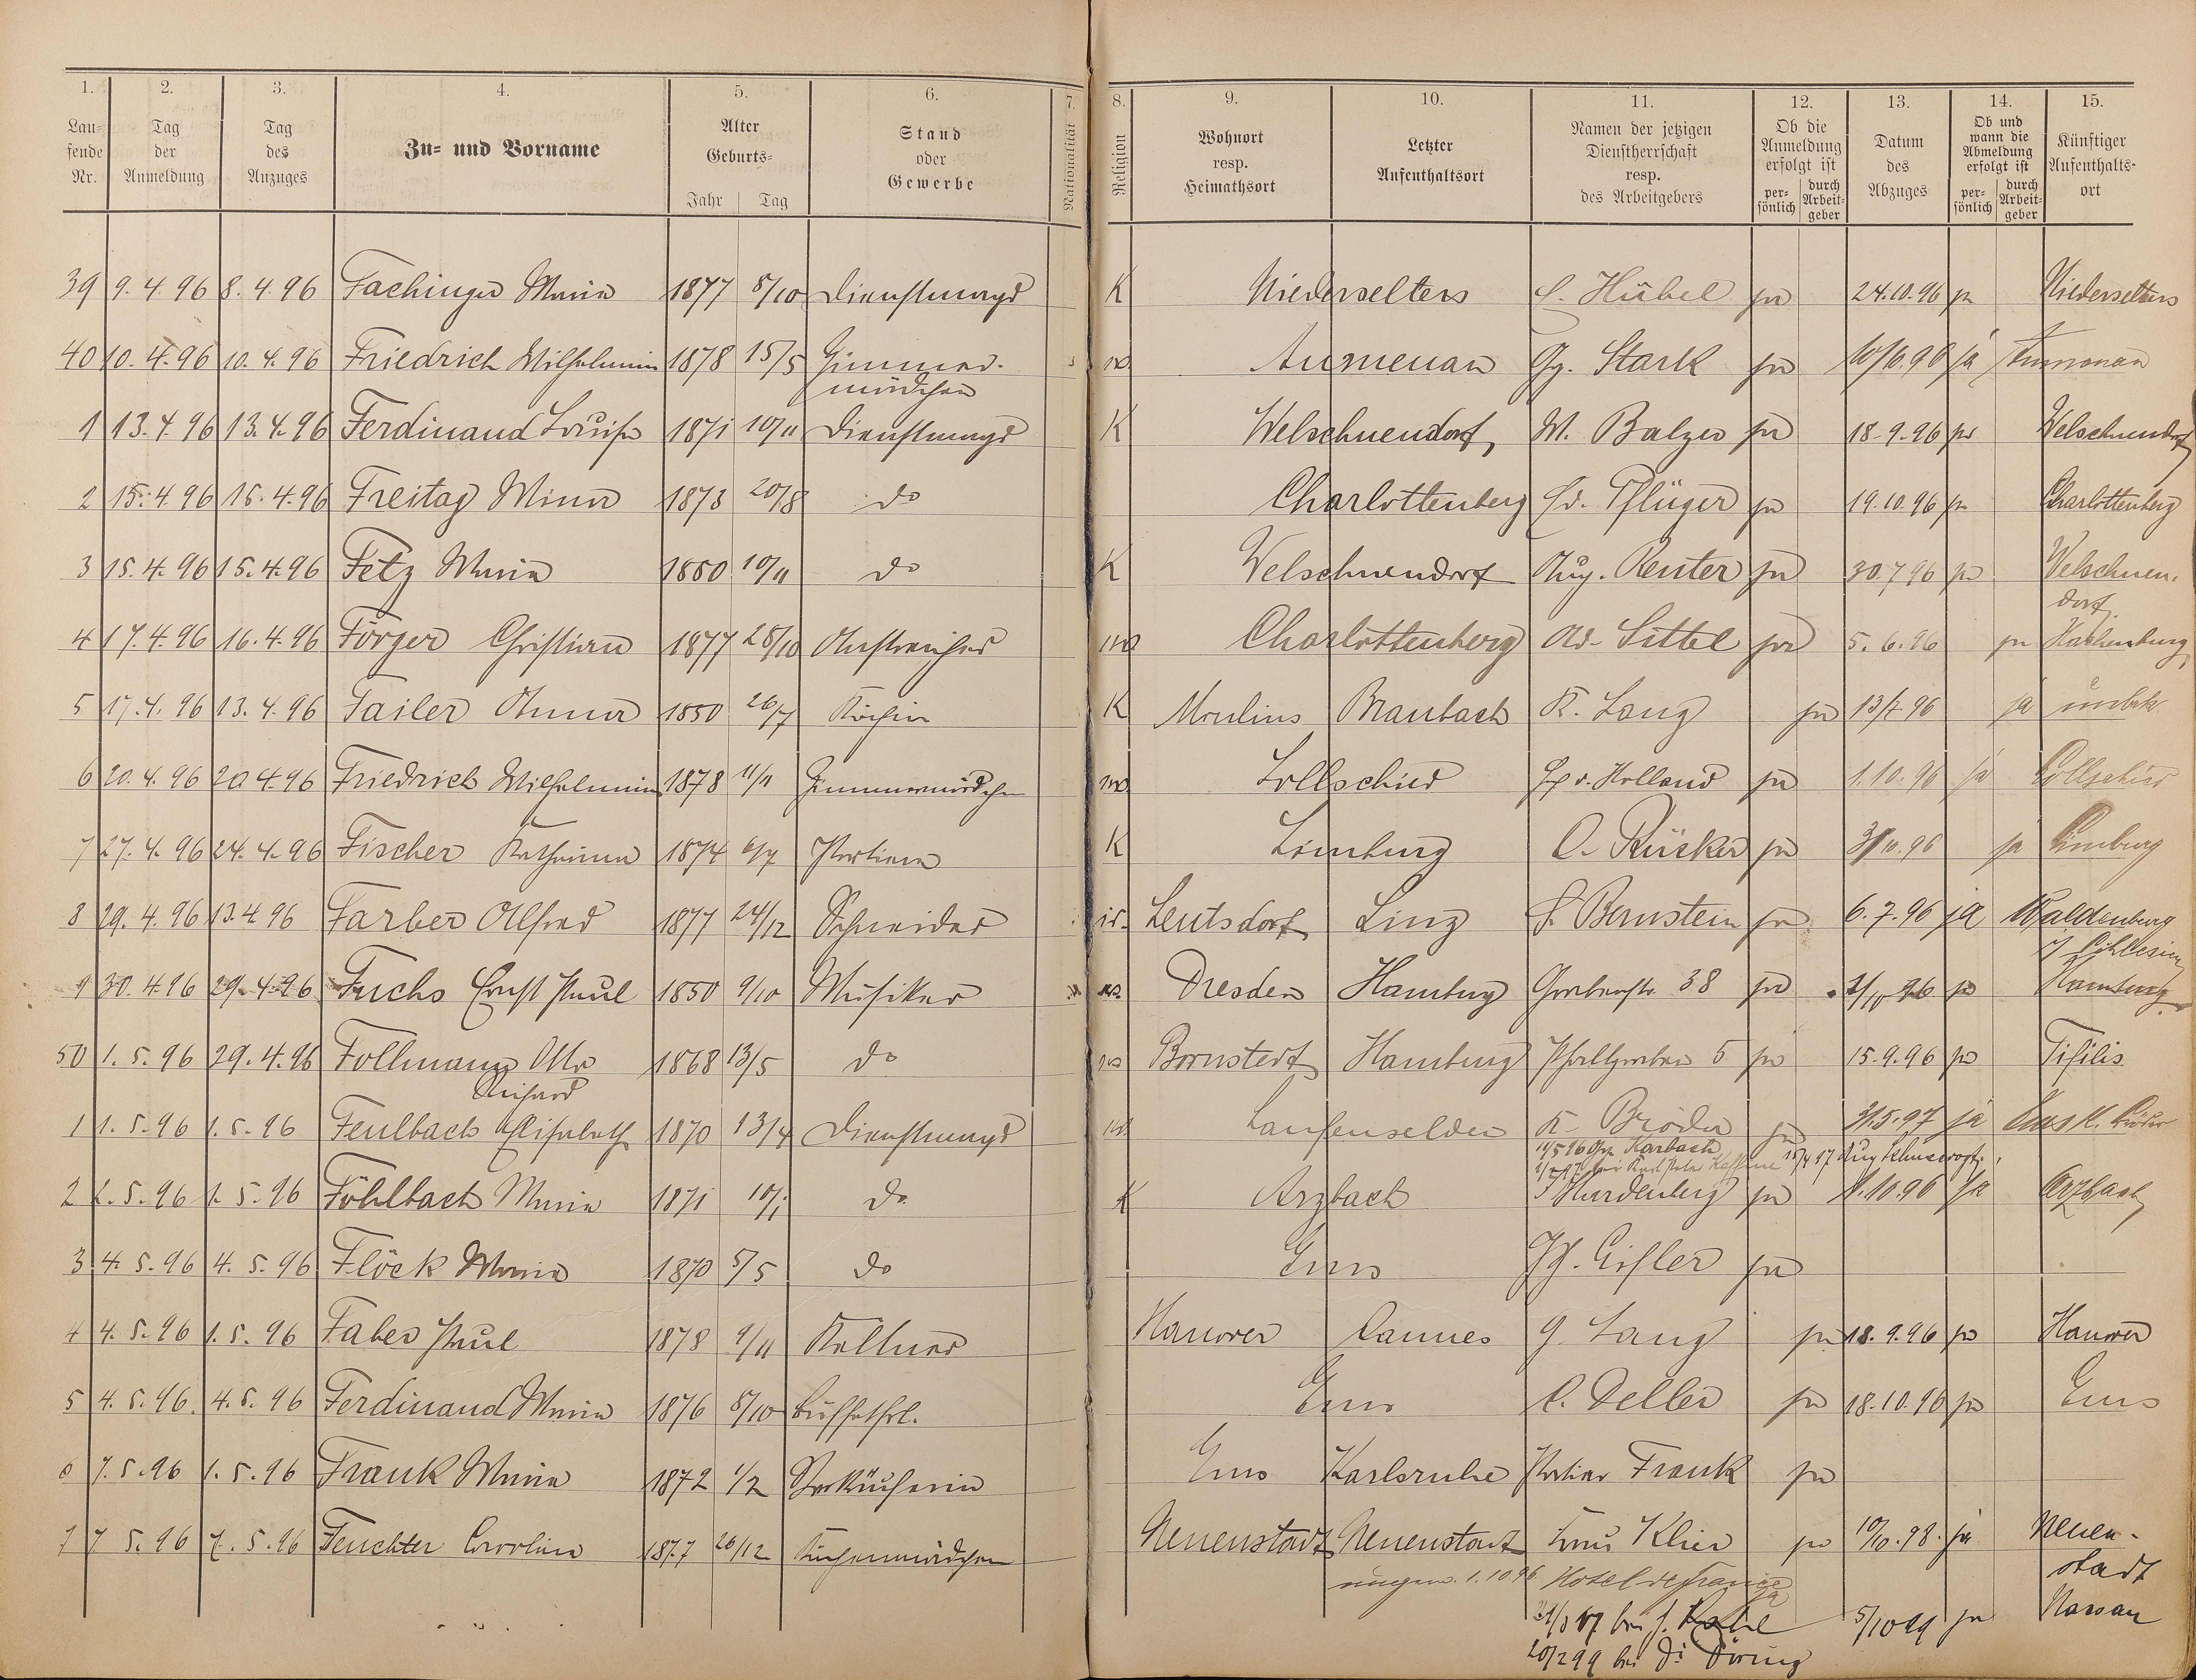 1. 2. 3. 4. 5. 6. 7. 8. 9. 10. 11. 12. 13. 14. 15.
Laufende Nr. Tag der Anmeldung Tag des Anzuges Zu- und Vorname Alter Geburts- Jahr Tag Stand oder Gewerbe Nationalität Religion Wohnort resp. Heimathsort Letzter Aufenthaltsort Namen der jetzigen Dienstherrschaft resp. des Arbeitgebers Ob die Anmeldung erfolgt ist persönlich durch Arbeitgeber Datum des Abzuges Ob und wann die Abmeldung erfolgt ist persönlich durch Arbeitgeber Künftiger Aufenthaltsort
39 9.4.96 8.4.96 Fachinger Maria 1877 8/10 Dienstmagd K Niederselters Hübel ja 24.10.96 ja Niederselters
40 10.4.96 10.4.96 Friedrich Wilhelmine 1878 15/5 Zimmer- Aumenau Gg. Stark ja 10/6.96 ja Aumenau
mädchen
1 13.4.96 13.4.96 Ferdinand Louise 1871 10/11 Dienstmagd K Welschneudorf W. Balzer ja 18.9.96 ja Welschneudorf
2 15.4.96 15.4.96 Freitag Mina 1873 20/8 do Charlottenberg Pflüger ja 19.10.96 ja Charlottenberg
3 15.4.96 15.4.96 Fetz Maria 1880 10/11 do K Welschneudorf Aug. Reuter ja 30.7.96 ja Welschneu-
dorf
4 17.4.96 16.4.96 Förger Christian 1877 28/10 Anstreicher Charlottenberg Ad. Sittel ja 5.6.96 ja Hachenburg
5 17.4.96 13.4.96 Failer Anna 1850 26/7 Köchin K Moulins Braubach K. Lang ja 13/7.96 ja unbek
6 20.4.96 20.4.96 Friedrich Wilhelmine 1878 11/11 Zimmermädchen Lollschied v. Holland ja 1.10.96 ja Lollschied
7 27.4.96 24.4.96 Fischer Katharina 1874 6/7 K Limburg C. Rücker ja 31/10.96 ja Limburg
8 29.4.96 13.4.96 Farber Alfred 1877 24/12 Schneider Leutsdorf Linz Bernstein ja 6.7.96 ja Waldenburg
i/ Schlesien
9 30.4.96 29.4.96 Fuchs Ernst Paul 1850 9/10 Musiker Dresden Hamburg Grabenstr. 38 ja 1/10 96 ja Hamburg
50 1.5.96 29.4.96 Follmann Otto 1868 13/5 do Bornstedt Hamburg Pfahlgraben 5 ja 15.9.96 ja Tifilis
Richard
1 1.5.96 1.5.96 Feulbach Elisabeth 1870 13/4 Dienstmagd Laufenselden K. Bröder ja 31.5.97 ja
Karbach
2 1.5.96 1.5.96 Föhlbach Maria 1871 10/1 do K Arzbach Hardenberg ja 1.10.96 ja Arzbach
3 4.5.96 4.5.96 Flöck Maria 1870 5/5 do Ems Eisler ja
4 4.5.96 1.5.96 Faber Paul 1878 9/11 Kellner Hanover Cannes G. Lang ja 18.9.96 ja Hanover
5 4.5.96 4.5.96 Ferdinand Maria 1876 8/10 Büffetfrl. Ems C. Deller ja 18.10.96 ja Ems
6 7.5.96 1.5.96 Frank Maria 1872 1/2 Verkäuferin Ems Karlsruhe Portier Frank ja
7 7.5.96 7.5.96 Feuchter Carolina 1877 26/12 Küchenmädchen Neuenstadt Neuenstadt Klier ja 10/10.98 ja Neuen-
stadt
1.10.96 Hotel de France
bei J. Kahl 5/10 99 ja Nassau
20/2 99 bei Döring